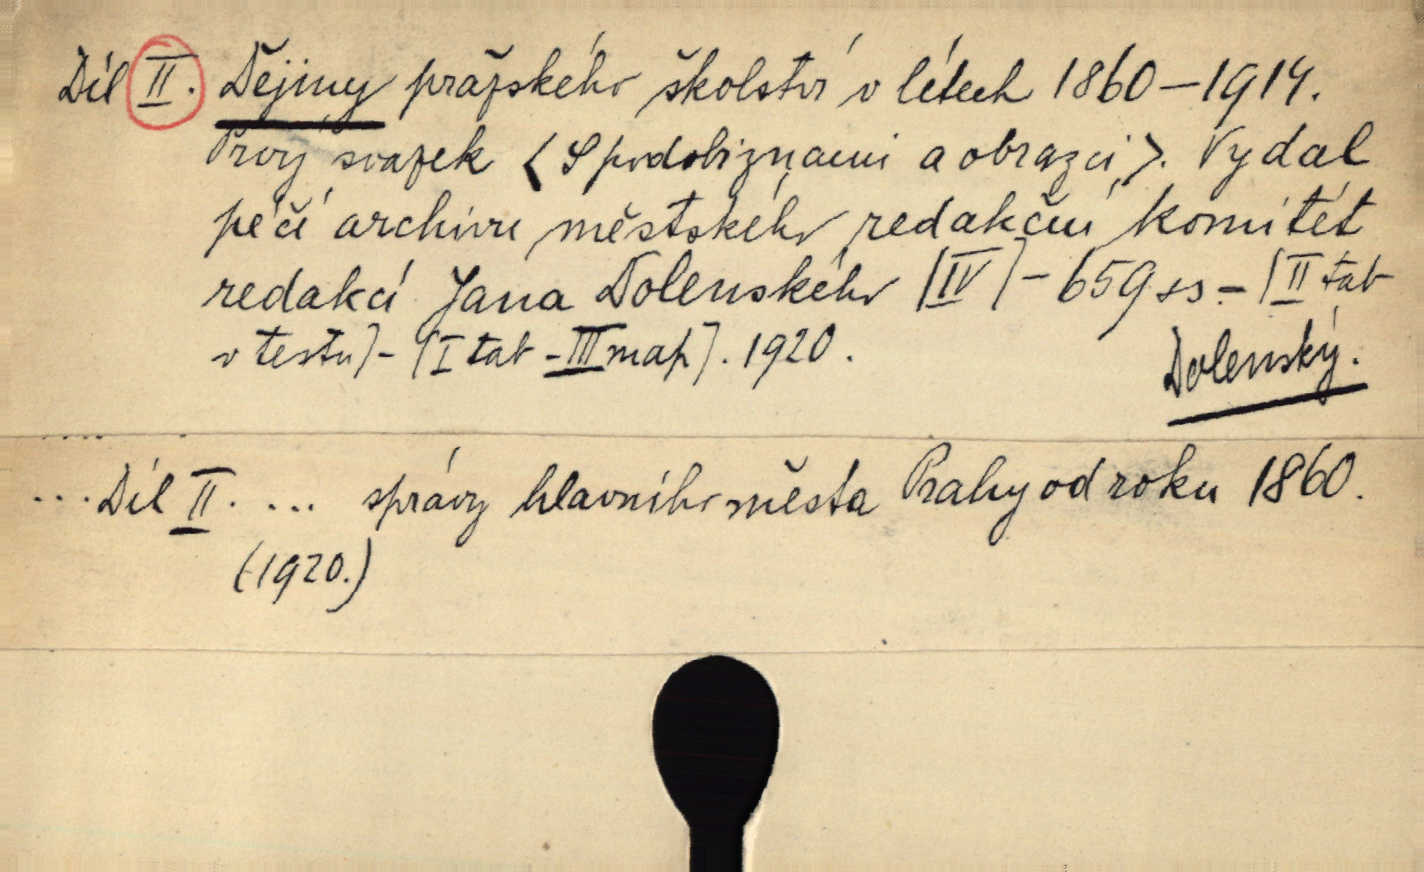 Díl II. Dějiny pražského školství v létech 1860-1914.
Prvý svazek <S podobiznami a obrazci>. Vydal
péčí archivu městského redakční komitét
redakcí Jana Dolenského [IV]-659 ss-[II tab
v textu]-[I tab-III map]. 1920.
Dolenský.
...Díl II. ... správy hlavního města Prahy od roku 1860.
(1920.)